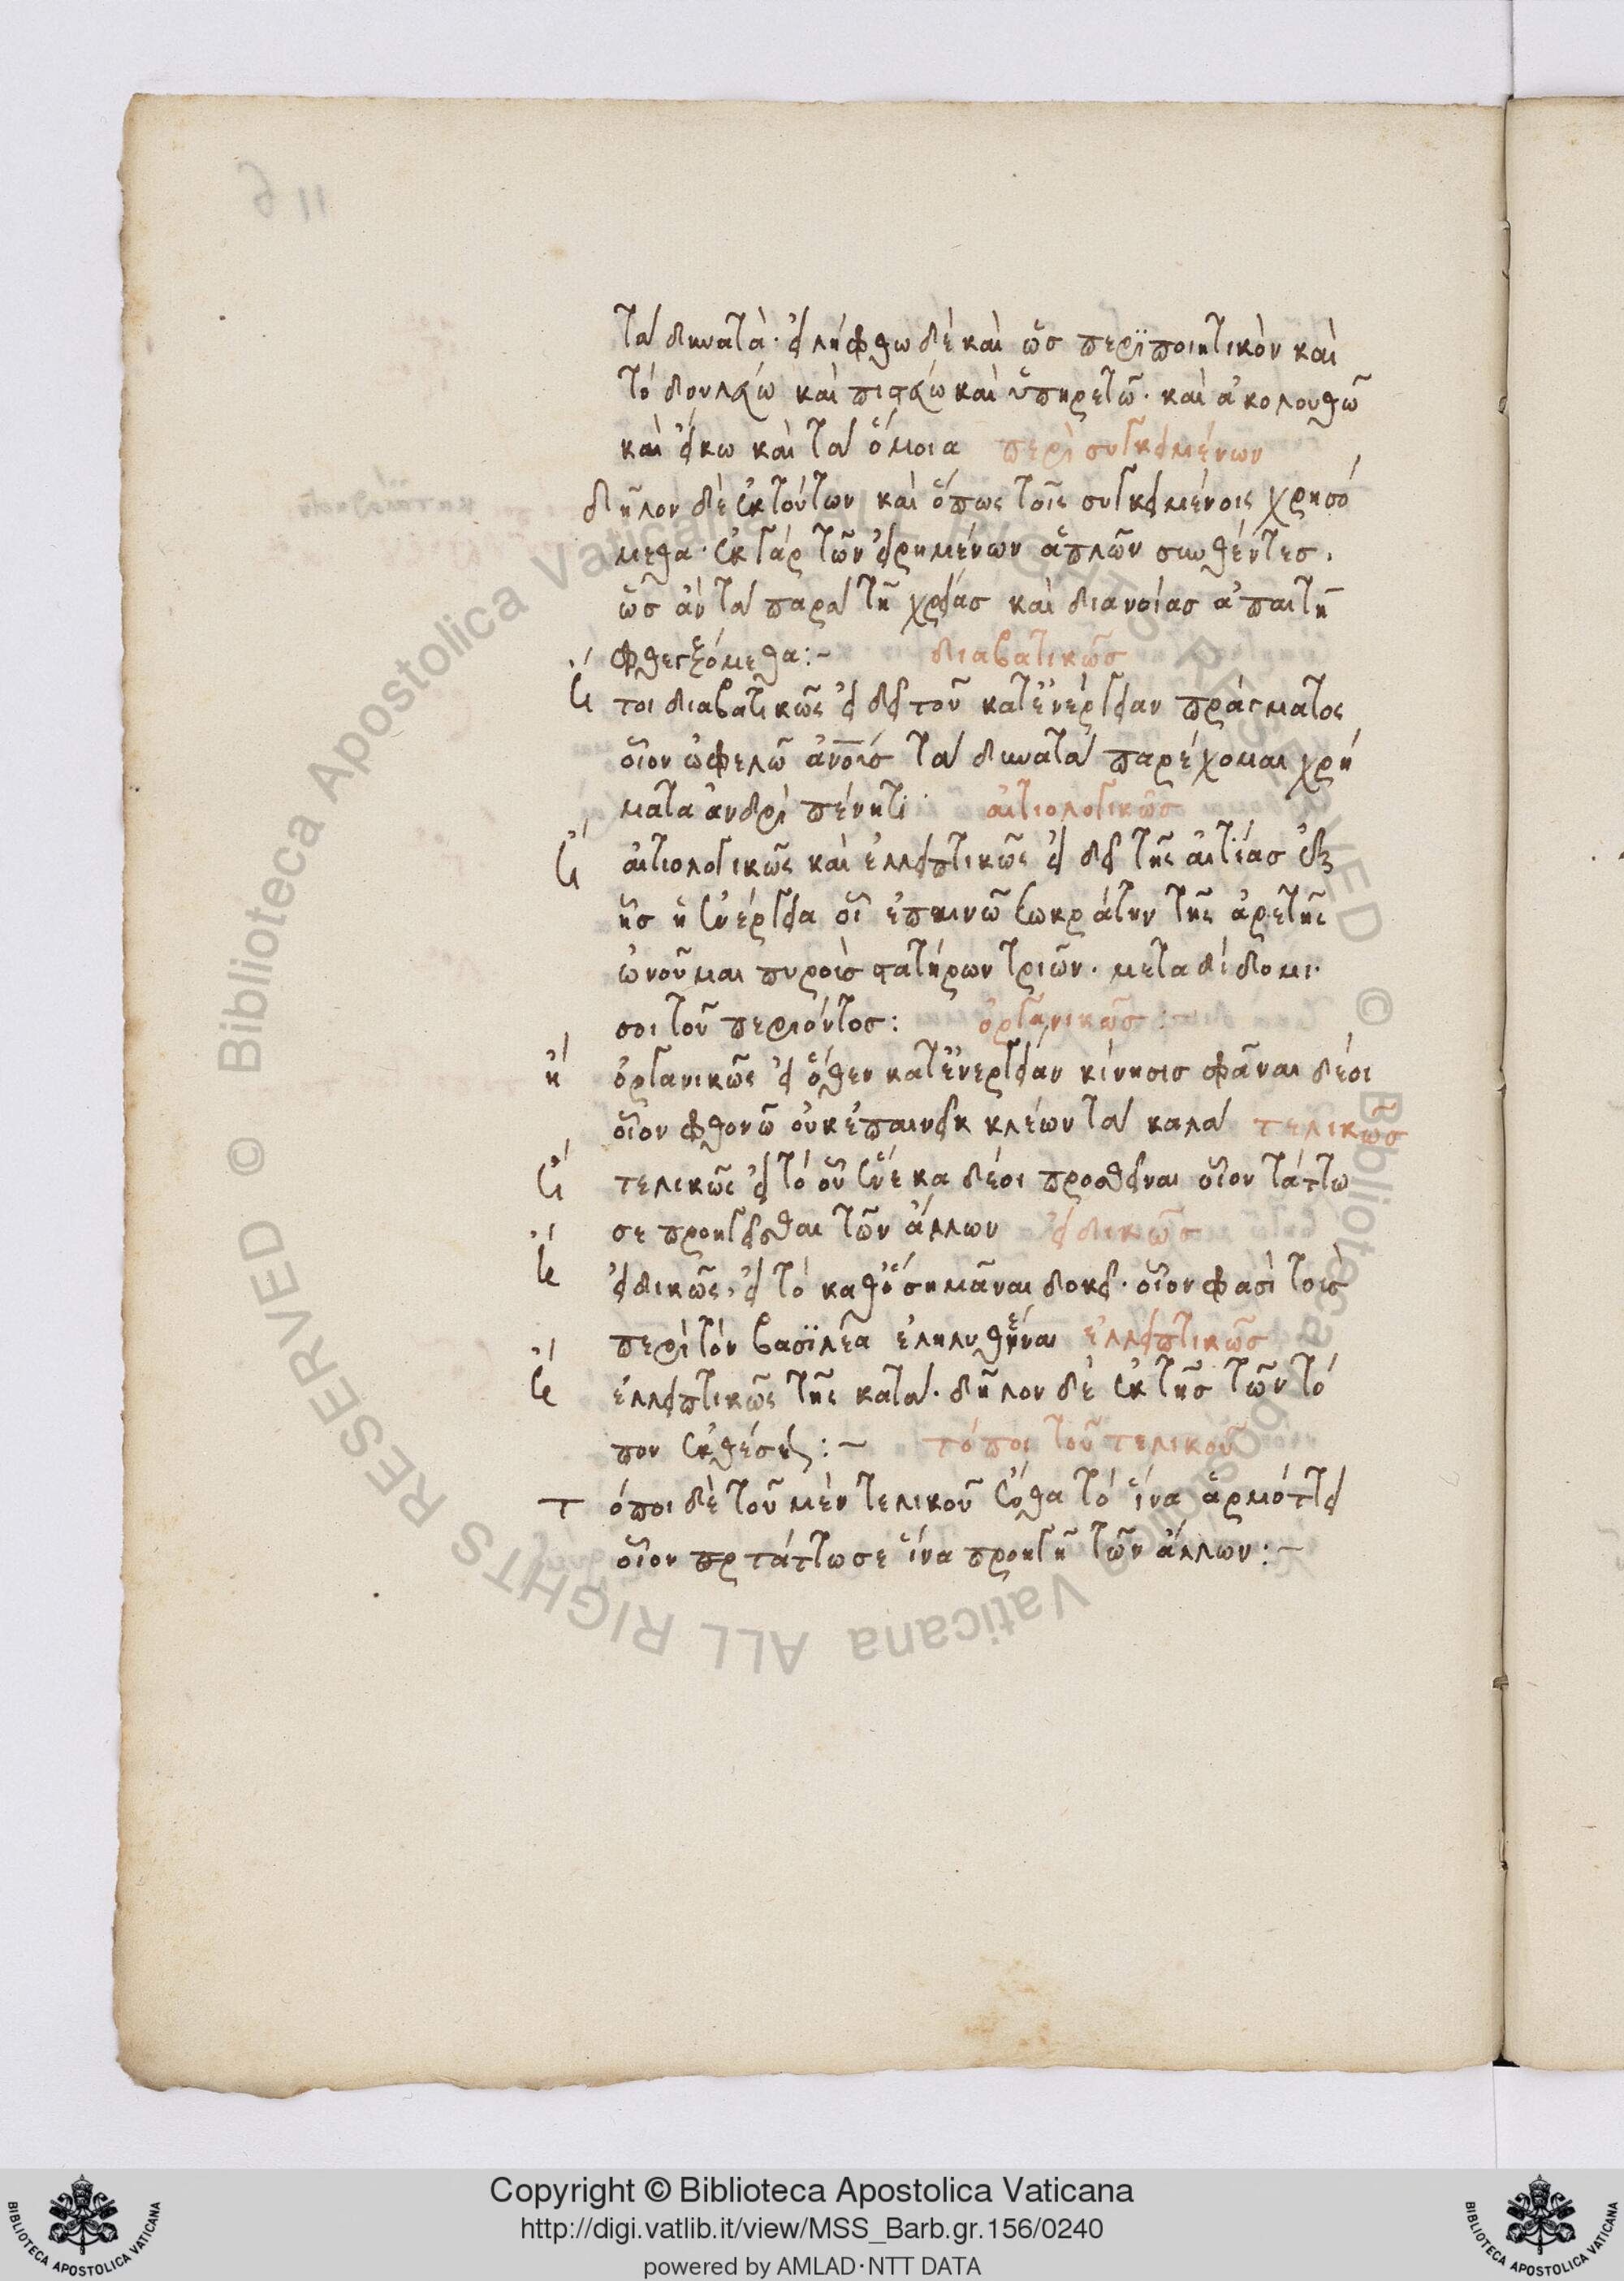 τὰ δυνατὰ· εἰλήφθω δὲ καὶ ὡς περϊποιητικὸν καὶ
τὸ δουλεύω καὶ πιστεύω καὶ ὑπηρετῶ· καὶ ἀκολουθῶ
καὶ εἴκω καὶ τὰ ὅμοια περὶ συγκειμένων
δῆλον δὲ ἐκ τούτων καὶ ὅπως τοῖς συγκειμένοις χρησό
μεθα· ἐκ γὰρ τῶν εἰρημένων ἁπλῶν συνθέντες,
ὡς ἂν τὰ παρὰ τῆ χρείας καὶ διανοίας ἀπαιτῆ
φθεγξόμεθα:~ διαβατικῶς
τοι διαβατικῶς εἰ δεῖ τοῦ κατ' ἐνέργειαν πράγματος
οἷον ὠφελῶ ἀνοις τὰ δυνατὰ παρέχομαι χρή
ματα ἀνδρὶ πένητι αἰτιολογικῶς
αἰτιολογικῶς καὶ ἐλλειπτικῶς εἰ δεῖ τῆς αἰτίας ἐξ
ἧς ἡ ἐνέργεια οἷ ἐπαινῶ Σωκράτην τῆς ἀρετῆς
ὠνοῦμαι πυροὺς στατήρων τριῶν· μεταδίδωμι
σοι τοῦ περιόντος: ὀργανικῶς
ἢ ὀργανικῶς εἰ ὅθεν κατ' ἐνεργείαν κίνησις φᾶναι δέοι
οἷον φθονῶ οὐκ ἐπαινεῖ κλέων τὰ καλὰ τελικῶς
τελικῶς εἰ τὸ οὗ ἕνεκα δέοι προσθεῖναι οἷον τάττω
σε προηγεῖσθαι τῶν ἄλλων εἰδικῶς
εἰδικῶς, εἰ τὸ καθ' ὃ σημᾶναι δοκεῖ· οἷον φασὶ τοῖς
περὶ τὸν βασϊλέα ἐληλυθέναι ἐλλειπτικῶς
ἐλλειπτικῶς τῆς κατὰ· δῆλον δὲ ἐκ τῆς τῶν τό
πον ἐκθέσεως:~ τόποι τοῦ τελικοῦ
τόποι δὲ τοῦ μὲν τελικοῦ ἔνθα τὸ ἵνα ἁρμόττει
οἷον πρ τάττω σε ἵνα προηγῆ τῶν ἄλλων:~
Copyright © Biblioteca Apostolica Vaticana
http://digi.vatlib.it/view/MSS_Barb.gr.156/0240
powered by AMLAD·NTT DATA
BIBLIOTECA APOSTOLICA VATICANA
BIBLIOTECA APOSTOLICA VATICANA
© Biblioteca Apostolica Vaticana ALL RIGHTS RESERVED
© Biblioteca Apostolica Vaticana ALL RIGHTS RESERVED